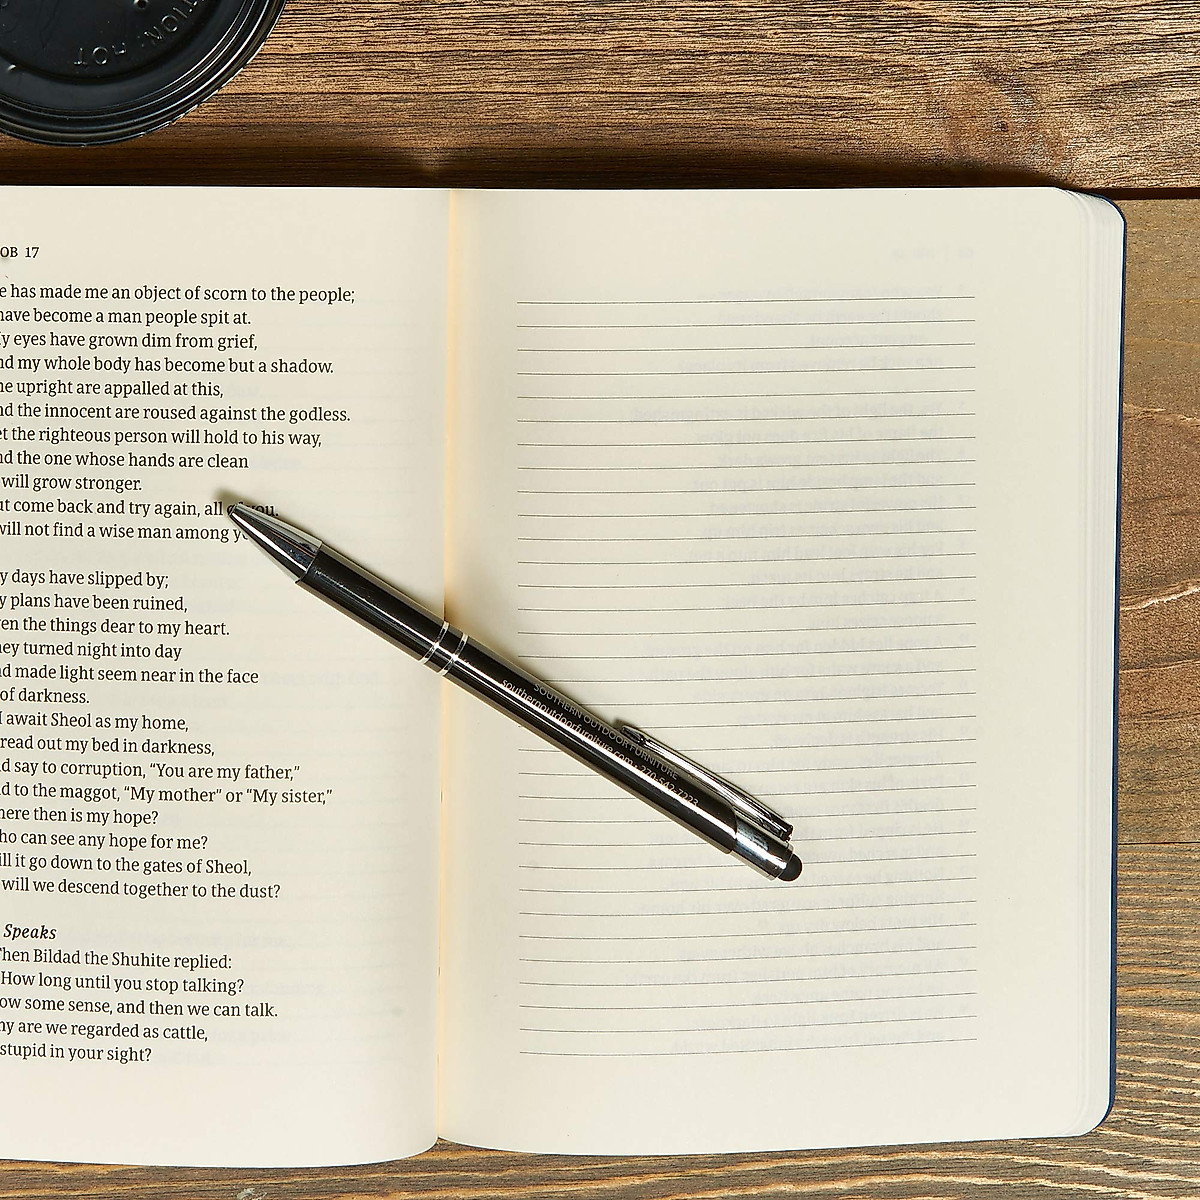 TION HOT
OB 17
e has made me an object of scorn to the people;
have become a man people spit at.
y eyes have grown dim from grief,
nd my whole body has become but a shadow.
he upright are appalled at this,
nd the innocent are roused against the godless.
et the righteous person will hold to his way,
nd the one whose hands are clean
will grow stronger.
ut come back and try again, all of you.
will not find a wise man among
y days have slipped by;
y plans have been ruined,
ven the things dear to my heart.
hey turned night into day
nd made light seem near in the face
of darkness.
I await Sheol as my home,
read out my bed in darkness,
d say to corruption, “You are my father,”
d to the maggot, “My mother” or “My sister,”
here then is my hope?
ho can see any hope for me?
ill it go down to the gates of Sheol,
will we descend together to the dust?
Speaks
Then Bildad the Shuhite replied:
How long until you stop talking?
ow some sense, and then we can talk.
hy are we regarded as cattle,
stupid in your sight?
SOUTHERN OUTDOOR FURNITURE
southernoutdoorfurniture.com • 270-542-7223